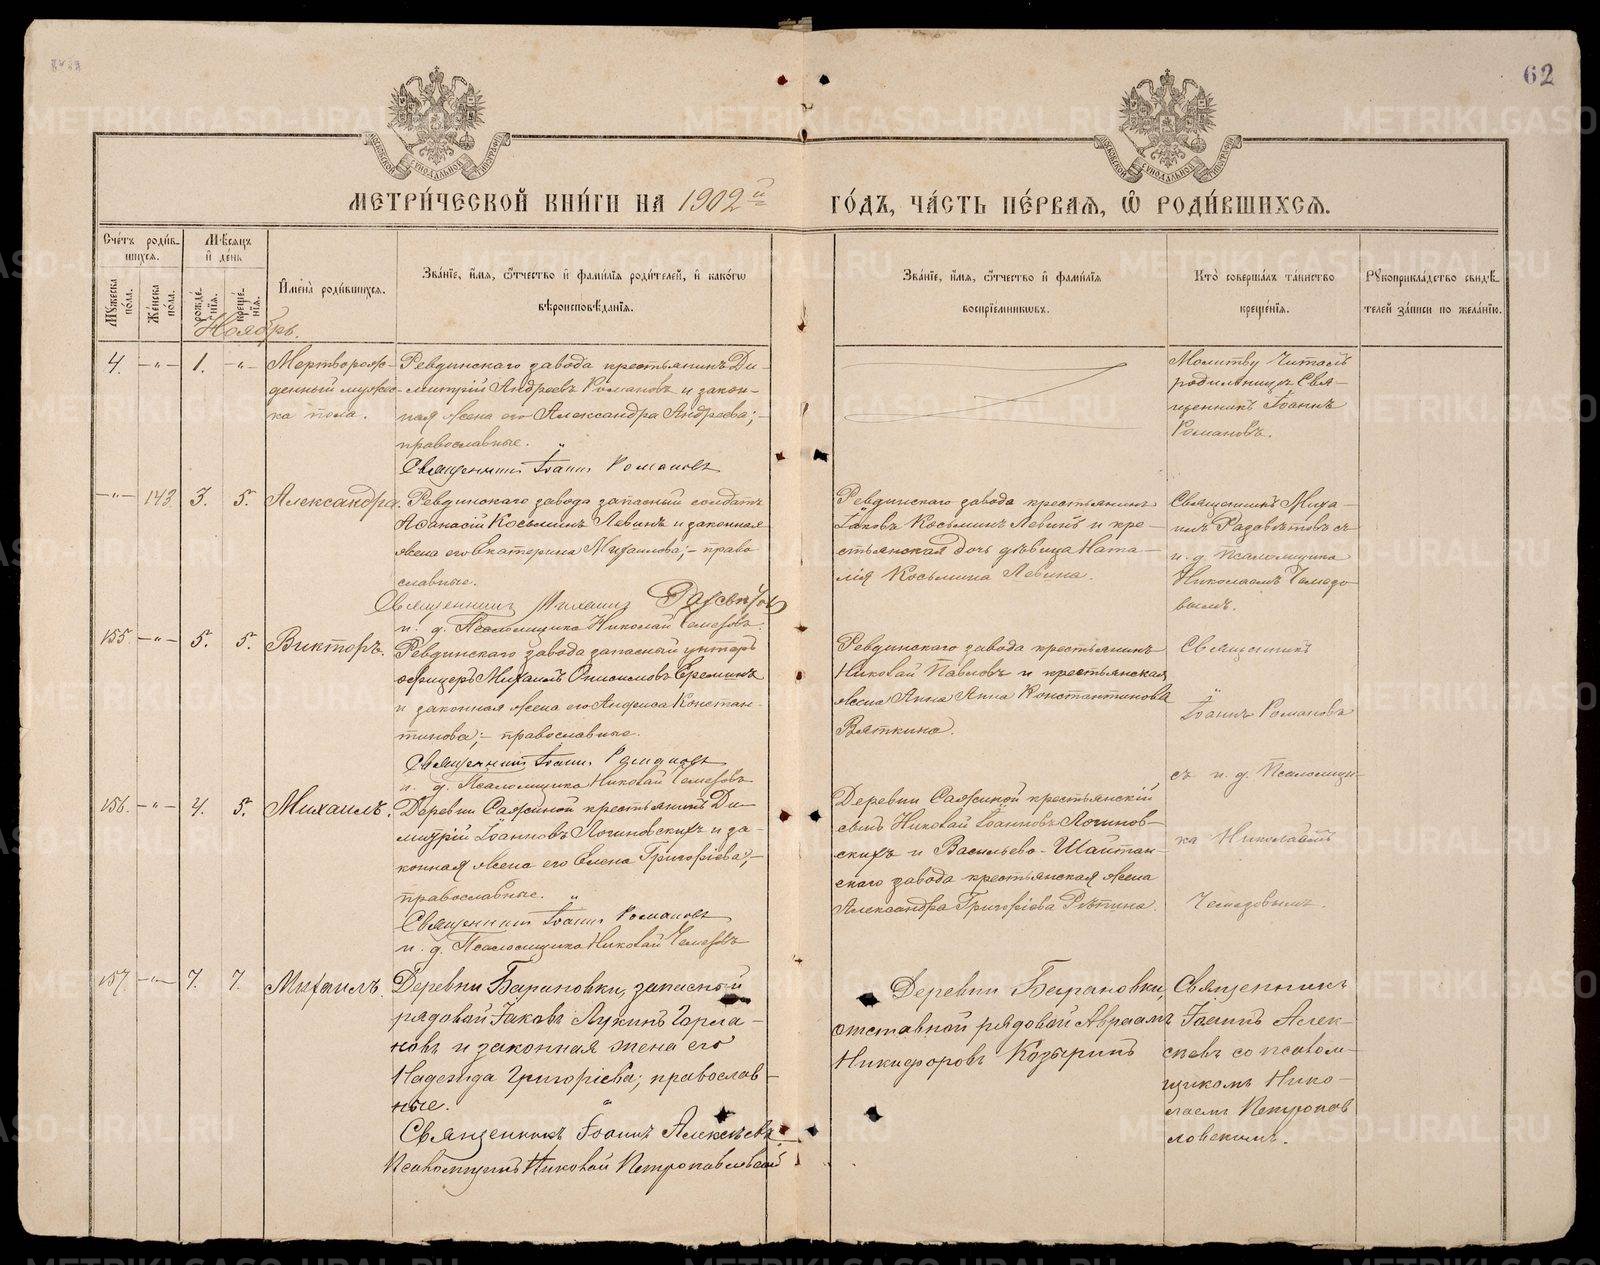 62
МЕТРИ́ЧЕСКОЙ КНИ́ГИ НА 1902й ГО́ДЪ, ЧА́СТЬ ПЕ́РВАЯ, Ѽ РОДИ́ВШИХСѦ.
Сче́тъ роди́в-
шихся.
Мѣ́сяцъ
и҆ день
Мꙋ́жеска по́ла.
Же́нска по́ла.
рожде́нїя.
креще́нїя.
И҆мена̀ роди́вшихся.
Зва́нїе, и҆́мя, ѻ҆́тчество и҆ фами́лїя роди́телей, и҆ како́гѡ
вѣроисповѣ́данїя.
Зва́нїе, и҆́мя, ѻ҆́тчество и҆ фами́лїя
воспрїе́мникѡвъ.
Кто̀ соверша́лъ та́инство
креще́нїя.
Рꙋкоприкла́дство свидѣ́-
телей за́писи по жела́нїю.
Ноябрь.
4. -„- 1. -„-
Мертворож-
денный мужес-
ка пола.
Ревдинскаго завода крестьянинъ Ди-
митрій Андреевъ Романовъ и закон-
ная жена его Александра Андреева;-
православные.
Священникъ Іоаннъ Романовъ
Молитву читалъ
родильницѣ Свя-
щенникъ Іоаннъ
Романовъ.
-„- 143 3. 5.
Александра.
Ревдинскаго завода запасный солдатъ
Аѳанасій Косьминъ Левинъ и законная
жена его Екатерина Михаилова;- право
славные.
Священникъ Михаилъ
и. д. Псаломщика Николай Чемезовъ.
Ревдинскаго завода крестьянинъ
Іаковъ Косьминъ Левинъ и кре-
стьянская дочь дѣвица Ната-
лія Косьмина Левина.
Священникъ Миха-
илъ съ
и. д. Псаломщика
Николаемъ Чемезо-
вымъ.
155 -„- 5. 5.
Викторъ.
Ревдинскаго завода запасный унтеръ
офицеръ Михаилъ Онисимовъ Еремин
и законная жена его Анфиса Констан-
тинова;- православные.
Священникъ Іоаннъ Романовъ
и. д. Псаломщика Николай Чемезовъ
Ревдинскаго завода крестьянинъ
Николай Павловъ и крестьянская
жена Анна Анна Константинова
Вяткина.
Священникъ
Іоаннъ Романовъ
съ и. д. Псаломщи-
ка Николаемъ
Чемезовымъ.
156. -„- 4. 5.
Михаилъ.
Деревни Сажиной крестьянинъ Ди-
митрій Іоанновъ Логиновскихъ и за-
конная жена его Елена Григоріева;-
православные.
Священникъ Іоаннъ Романовъ
и. д. Псаломщика Николай Чемезовъ
Деревни Сажиной крестьянскій
сынъ Николай Іоанновъ Логинов-
скихъ и Васильево-Шайтан-
скаго завода крестьянская жена
Александра Григоріева Рѣпина.
157 -„- 7. 7.
Михаилъ.
Деревни Барановки, запасный
рядовой Іаковъ Лукинъ
и законная жена его
Надежда Григоріева; православ-
ные.
Священникъ Іоаннъ Алексѣевъ.
Псаломщикъ Николай Петропавловскій
Деревни Барановки,
отставной рядовой Авраамъ
Никифоровъ Козыринъ
Священникъ
Іоаннъ Алек-
сѣевъ со псалом-
щикомъ Нико-
лаемъ Петропав
ловскимъ.
METRIKI.GASO-URAL.RU